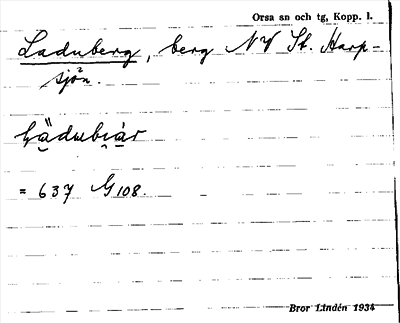 Orsa sn och tg, Kopp. l.
Laduberg, berg NV St. Harp-
sjön.
= 637 G108.
Bror Lindén 1934